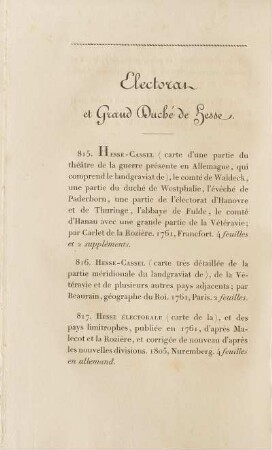 Electorat
et Grand Duché de Hesse.
815. HESSE-CASSEL (carte d'une partie du
théâtre de la guerre présente en Allemagne, qui
comprend le landgraviat de), le comté de Waldeck,
une partie du duché de Westphalie, l'évêché de
Paderborn, une partie de l'électorat d'Hanovre
et de Thuringe, l'abbaye de Fulde, le comté
d'Hanau avec une grande partie de la Vétéravie;
par Carlet de la Rozière. 1761, Francfort. 4 feuilles
et 2 supplémens.
816. HESSE-CASSEL (carte très détaillée de la
partie méridionale du landgraviat de), de la Ve-
téravie et de plusieurs autres pays adjacents; par
Beaurain, géographe du Roi. 1761, Paris. 2 feuilles.
817. HESSE ÉLECTORALE (carte de la), et des
pays limitrophes, publiée en 1761, d'après Ma-
lecot et la Rozière, et corrigée de nouveau d'après
les nouvelles divisions. 1805, Nuremberg. 4 feuilles
en allemand.